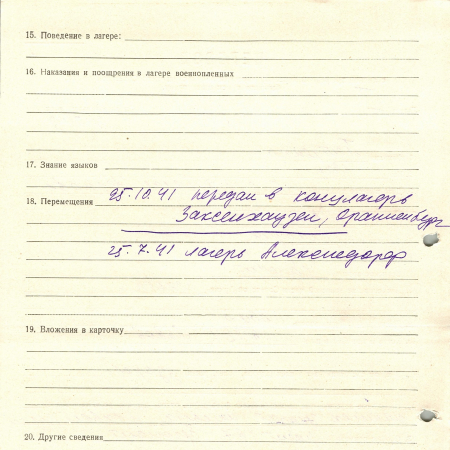 15. Поведение в лагере:
16. Наказания и поощрения в лагере военнопленных
17. Знание языков
18. Перемещения 25.10.41 передан в концлагерь
Заксенхаузен, Ораниенбург
25.7.41 лагерь Алексисдорф
19. Вложения в карточку
20. Другие сведения